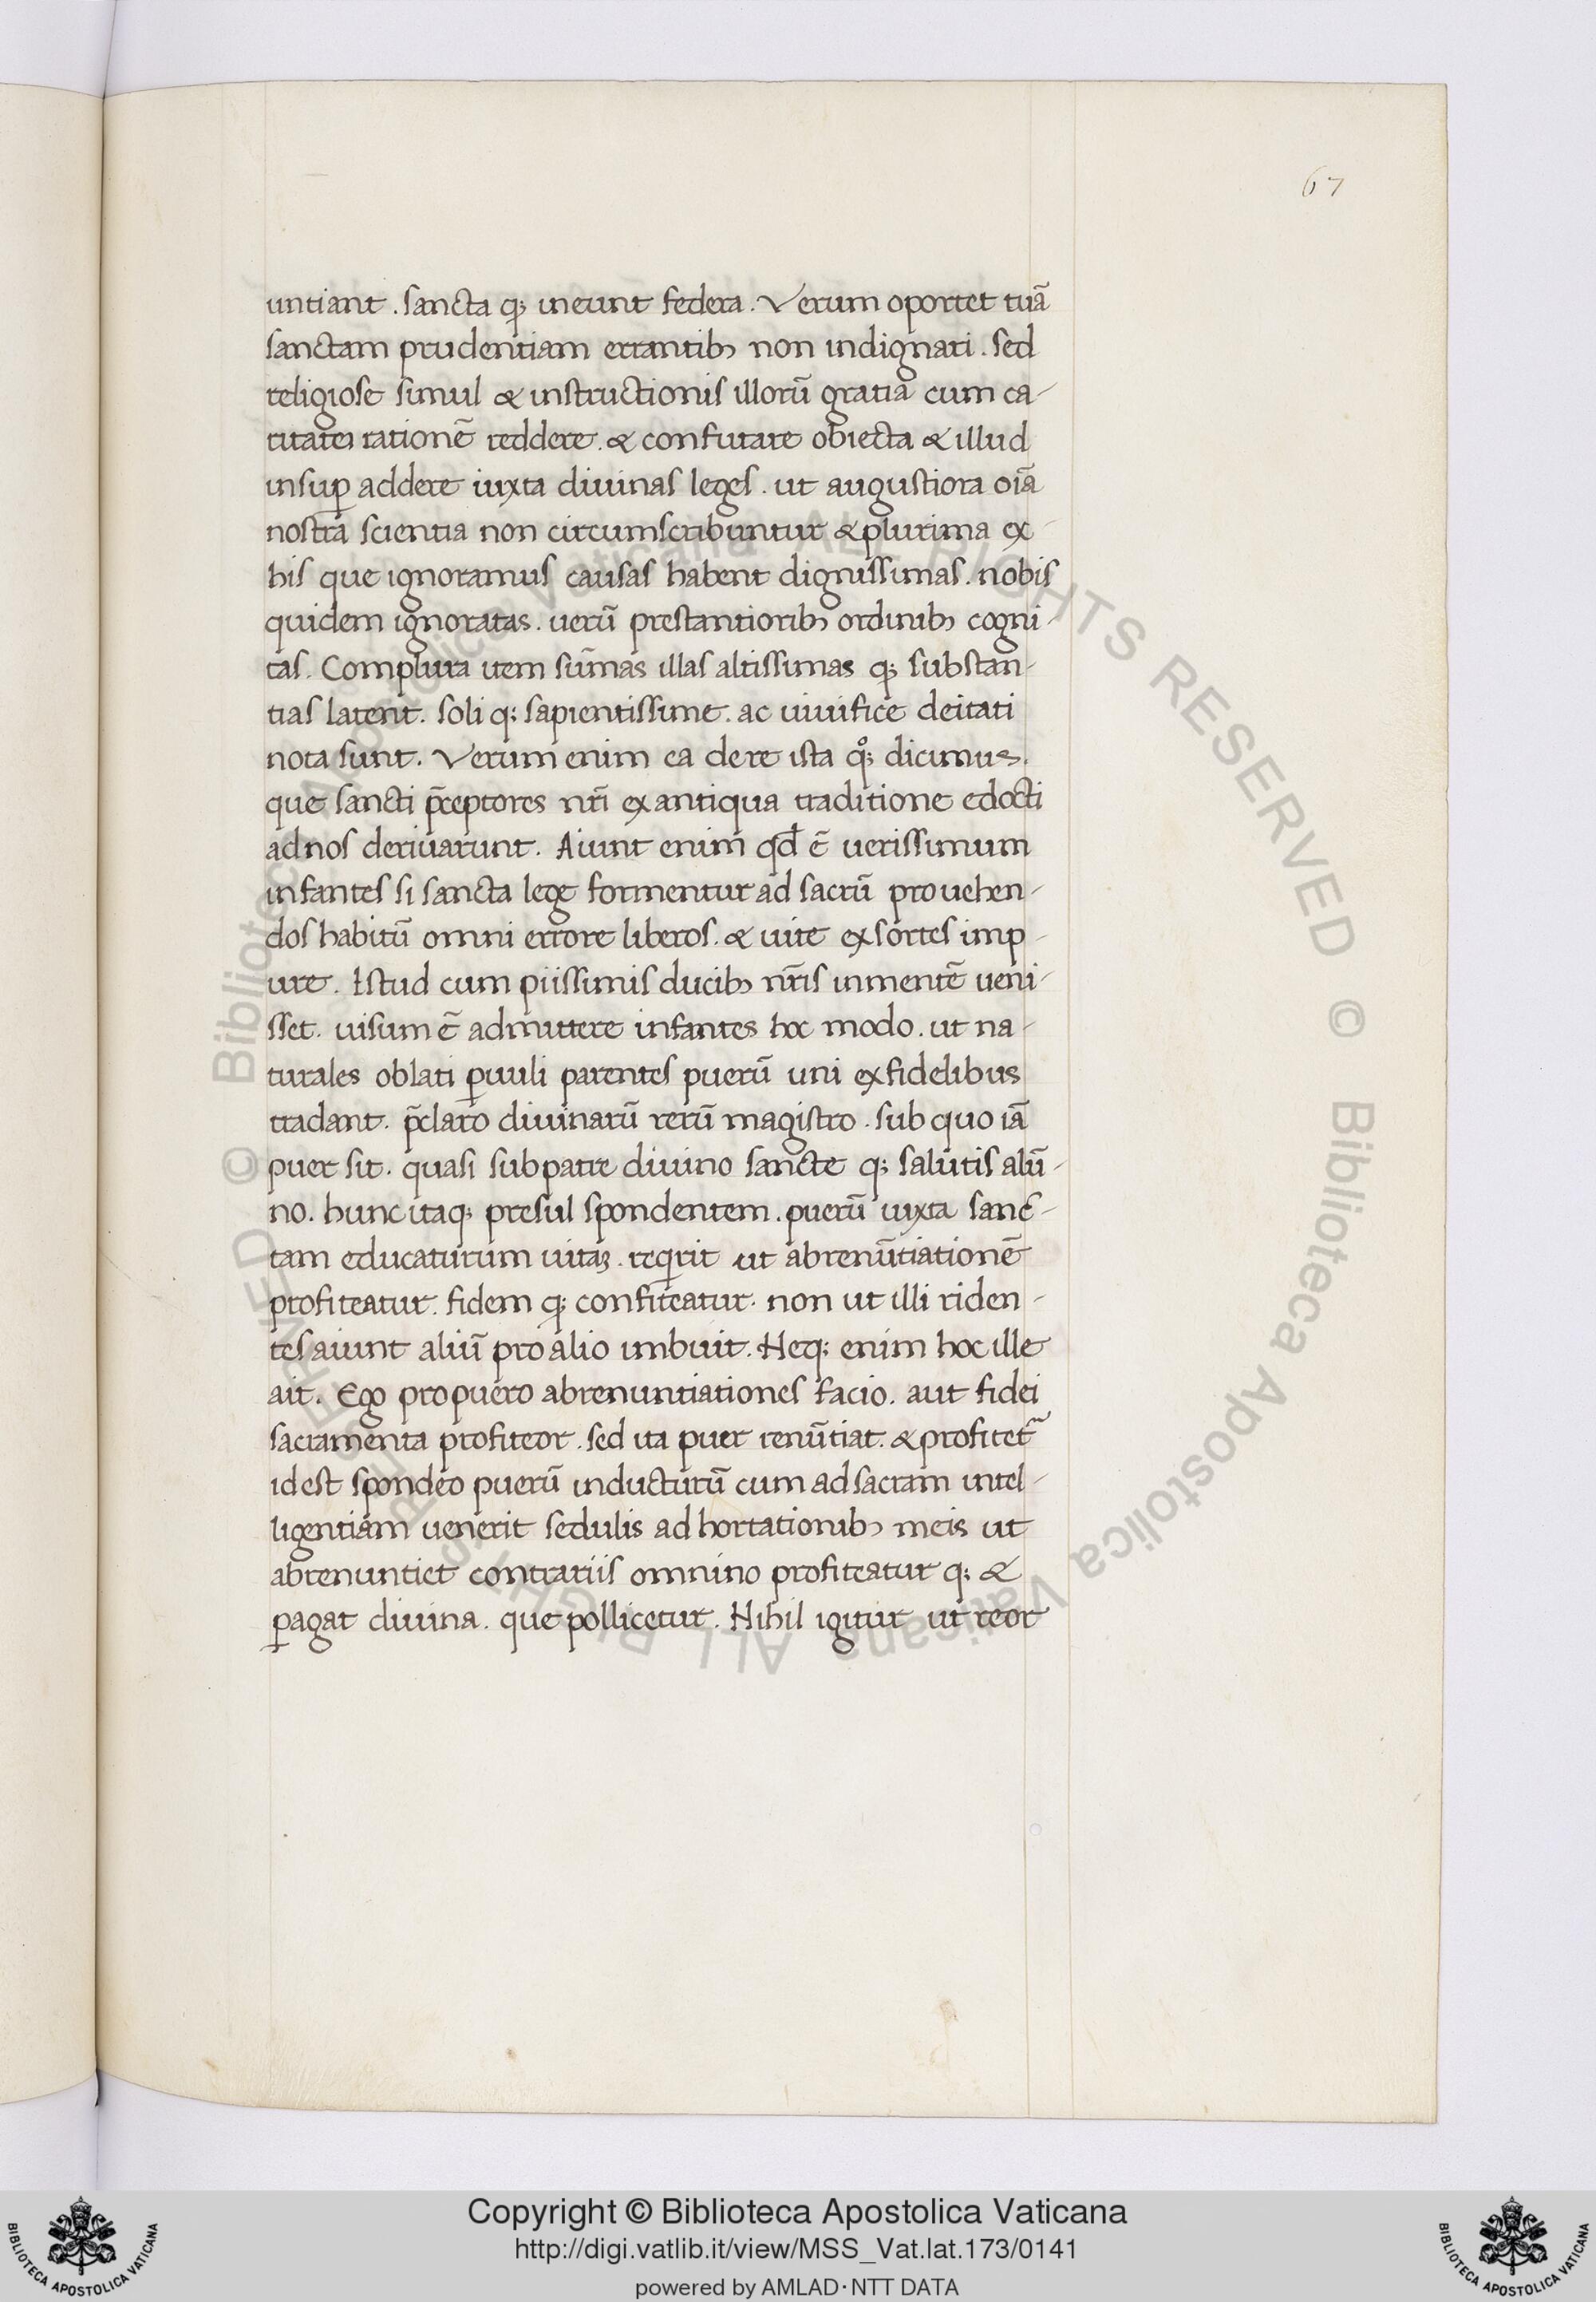 67
untiant . sancta q; ineunt federa . Verum oportet tuā
sanctam prudentiam errantibꝫ non indignari . sed
religiose simul & instructionis illorū gratia cum ca-
ritate rationē reddere . & confutare obiecta & illud
insuꝑ addere iuxta diuinas leges . ut augustiora oīa
nostra scientia non circumscribuntur & plurima ex-
his que ignoramus causas habent dignissimas . nobis
quidem ignoratas . uerū prestantioribꝫ ordinibꝫ cogni-
tas . Complura item sūmas illas altissimas q; substan-
tias latent . soli q; sapientissime . ac uiuifice deitati
nota sunt . Verum enim ea de re ista qͦ; dicimus .
que sancti p̄ceptores nr̄i ex antiqua traditione edocti
ad nos deriuarunt . Aiunt enim qđ ē uerissimum
infantes si sancta lege formentur ad sacrū prouehen-
dos habitū omni errore liberos . & uite exsortes imp-
ure . Istud cum piissimis ducibꝫ nr̄is in mentē ueni-
sset . uisum ē admittere infantes hoc modo . ut na-
turales oblati ꝑuuli parentes puerū uni ex fidelibus
tradant . p̄claro diuinarū rerū magistro . sub quo iā
puer sit . quasi sub patre diuino sancte q; salutis alū-
no . hunc itaq; presul spondentem . puerū iuxta sanc-
tam educaturum uitaꝫ . reqͥrit ut abrenūtiationē
profiteatur . fidem q; confiteatur . non ut illi riden-
tes aiunt aliū pro alio imbuit . Neq; enim hoc ille
ait . Ego pro puero abrenuntiationes facio . aut fidei
sacramenta profiteor . sed ita puer renūtiat . & profitet᷑
id est spondeo puerū inducturū cum ad sacram intel-
ligentiam uenerit sedulis ad hortationibꝫ meis ut
abrenuntiet contrariis omnino profiteatur q; &
ꝑagat diuina . que pollicetur . Nihil igitur ut reor
© Biblioteca Apostolica Vaticana ALL RIGHTS RESERVED © Biblioteca Apostolica Vaticana ALL RIGHTS RESERVED
Copyright © Biblioteca Apostolica Vaticana
http://digi.vatlib.it/view/MSS_Vat.lat.173/0141
powered by AMLAD·NTT DATA
BIBLIOTECA APOSTOLICA VATICANA
BIBLIOTECA APOSTOLICA VATICANA